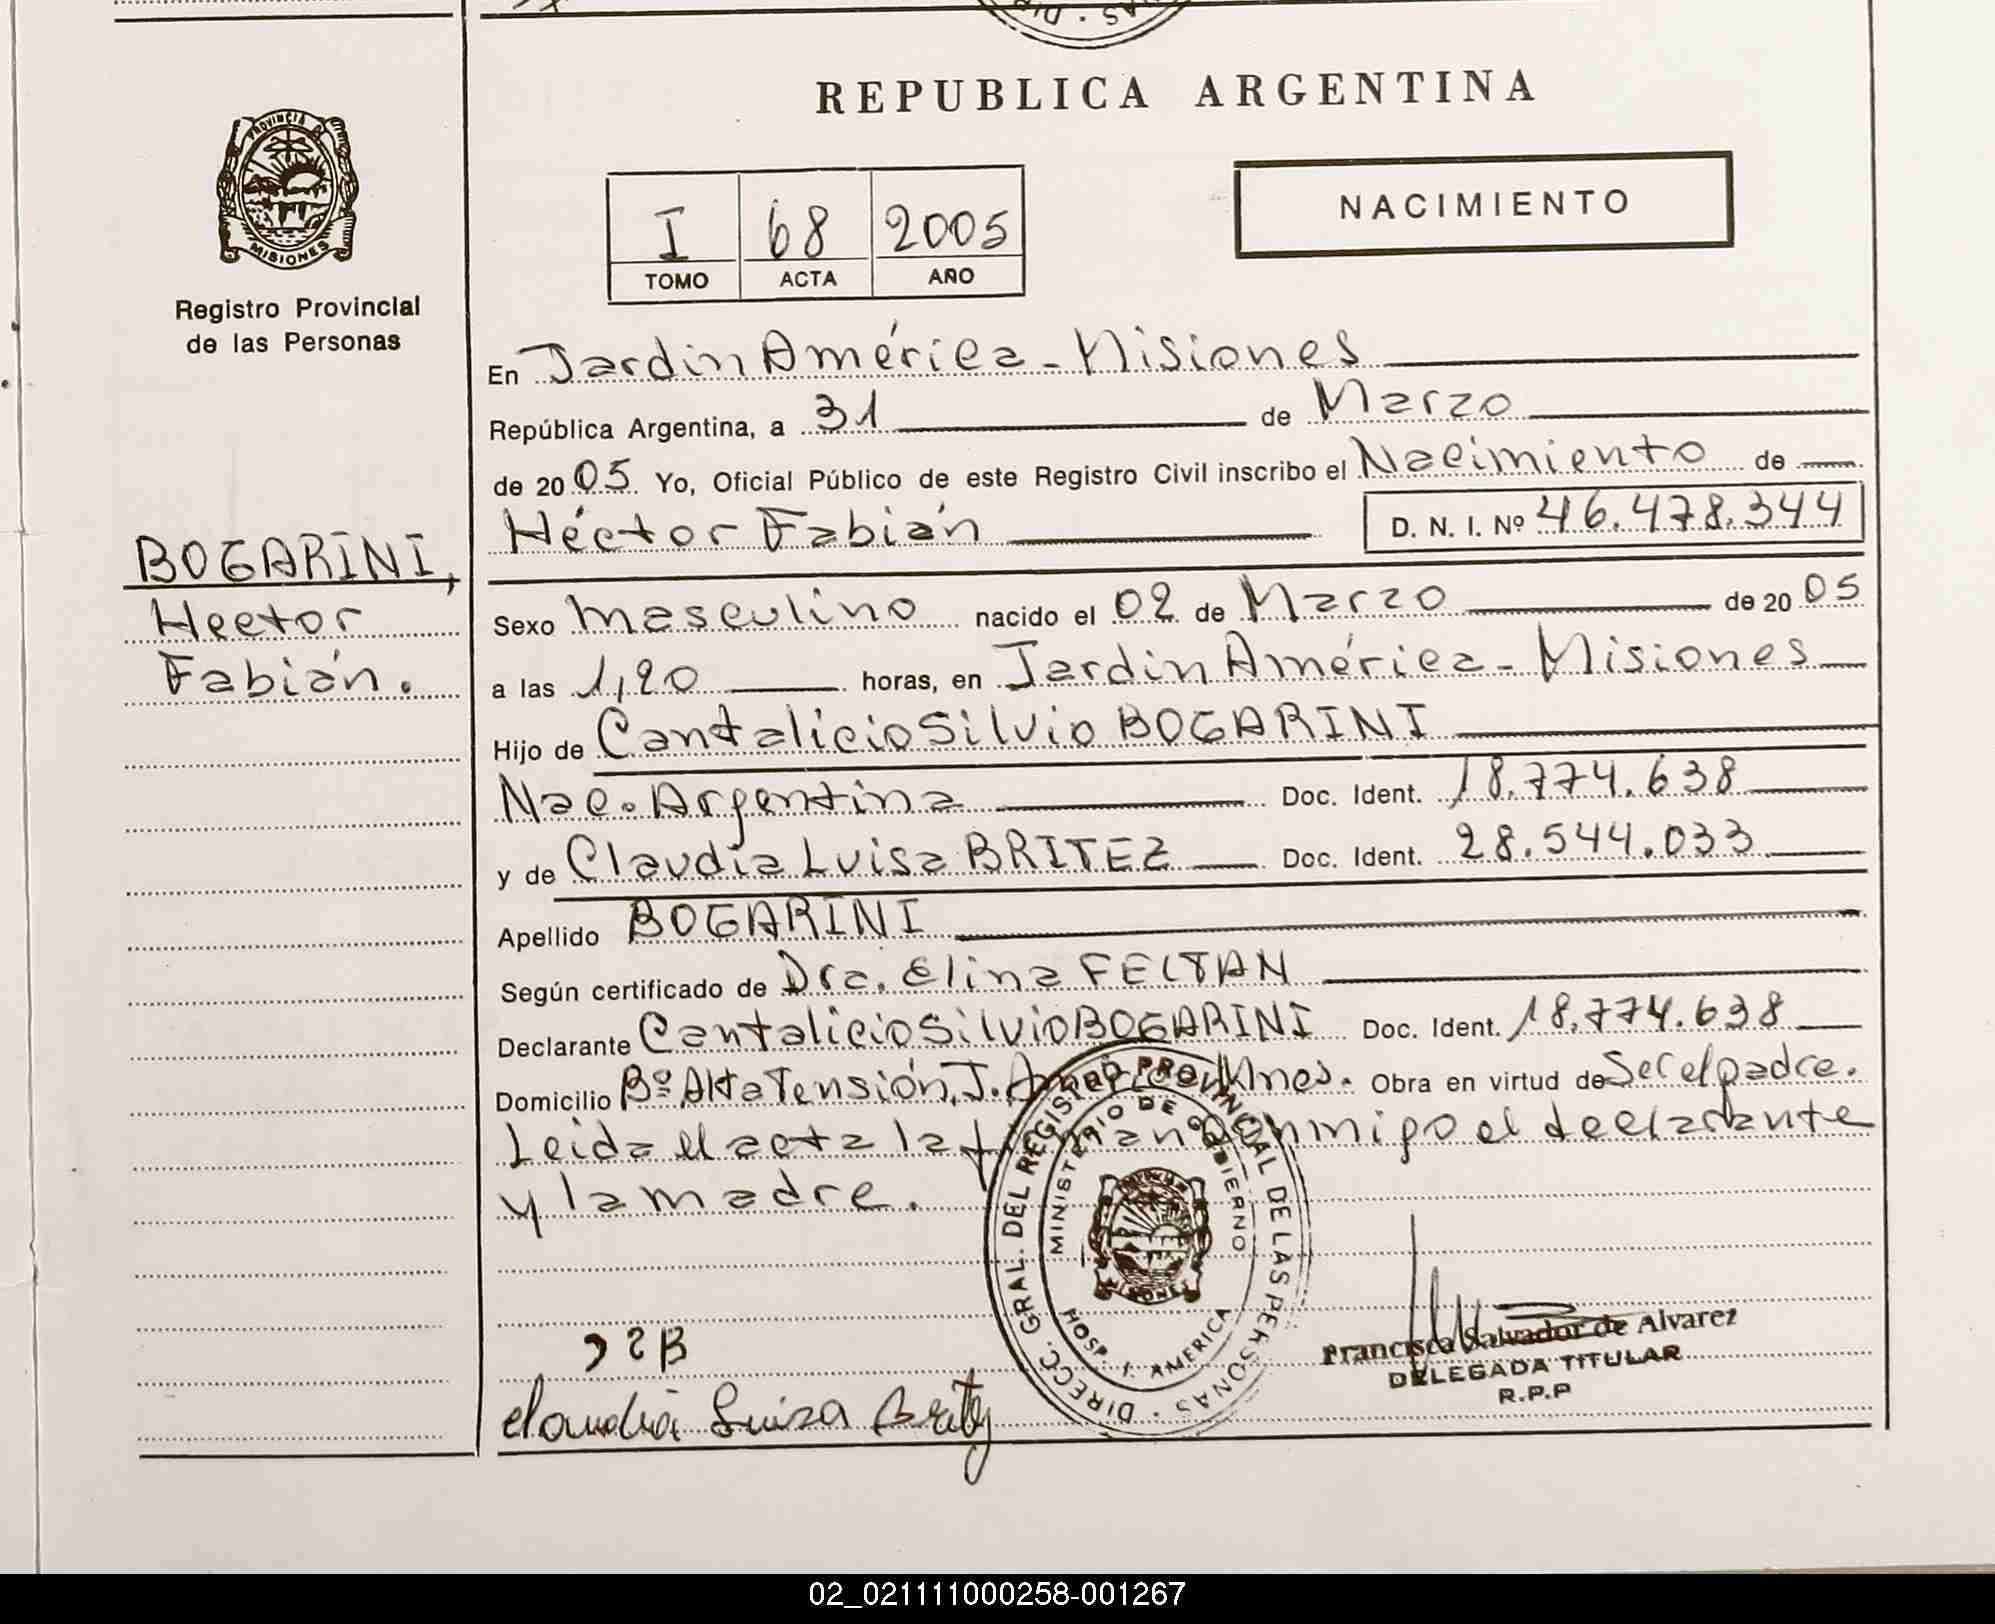 REPUBLICA ARGENTINA
PROVINCIA D
MISIONES
Registro Provincial
de las Personas
I 68 2005
TOMO ACTA AÑO
NACIMIENTO
En Jardin América - Misiones
República Argentina, a 31 de Marzo
de 2005 Yo, Oficial Público de este Registro Civil inscribo el Nacimiento de
Héctor Fabián D. N. I. Nº 46.478.344
BOGARINI,
Hector
Fabián.
Sexo masculino nacido el 02 de Marzo de 2005
a las 1,20 horas, en Jardin América - Misiones
Hijo de Cantalicio Silvio BOGARINI
Nac. Argentina Doc. Ident. 18.774.638
y de Claudia Luisa BRITEZ Doc. Ident. 28.544.033
Apellido BOGARINI
Según certificado de Dra. Elina FELTAN
Declarante Cantalicio Silvio BOGARINI Doc. Ident. 18.774.638
Domicilio Bº Alta Tensión, J. América Mnes. Obra en virtud de Ser el padre.
Leida el acta la firman conmigo el declarante
y la madre.
DIRECC. GRAL. DEL REGISTRO PROVINCIAL DE LAS PERSONAS
MINISTERIO DE GOBIERNO
HOSP. J. AMERICA
Francisca Salvador de Alvarez
DELEGADA TITULAR
R.P.P
Claudia Luisa Britez
02_021111000258-001267